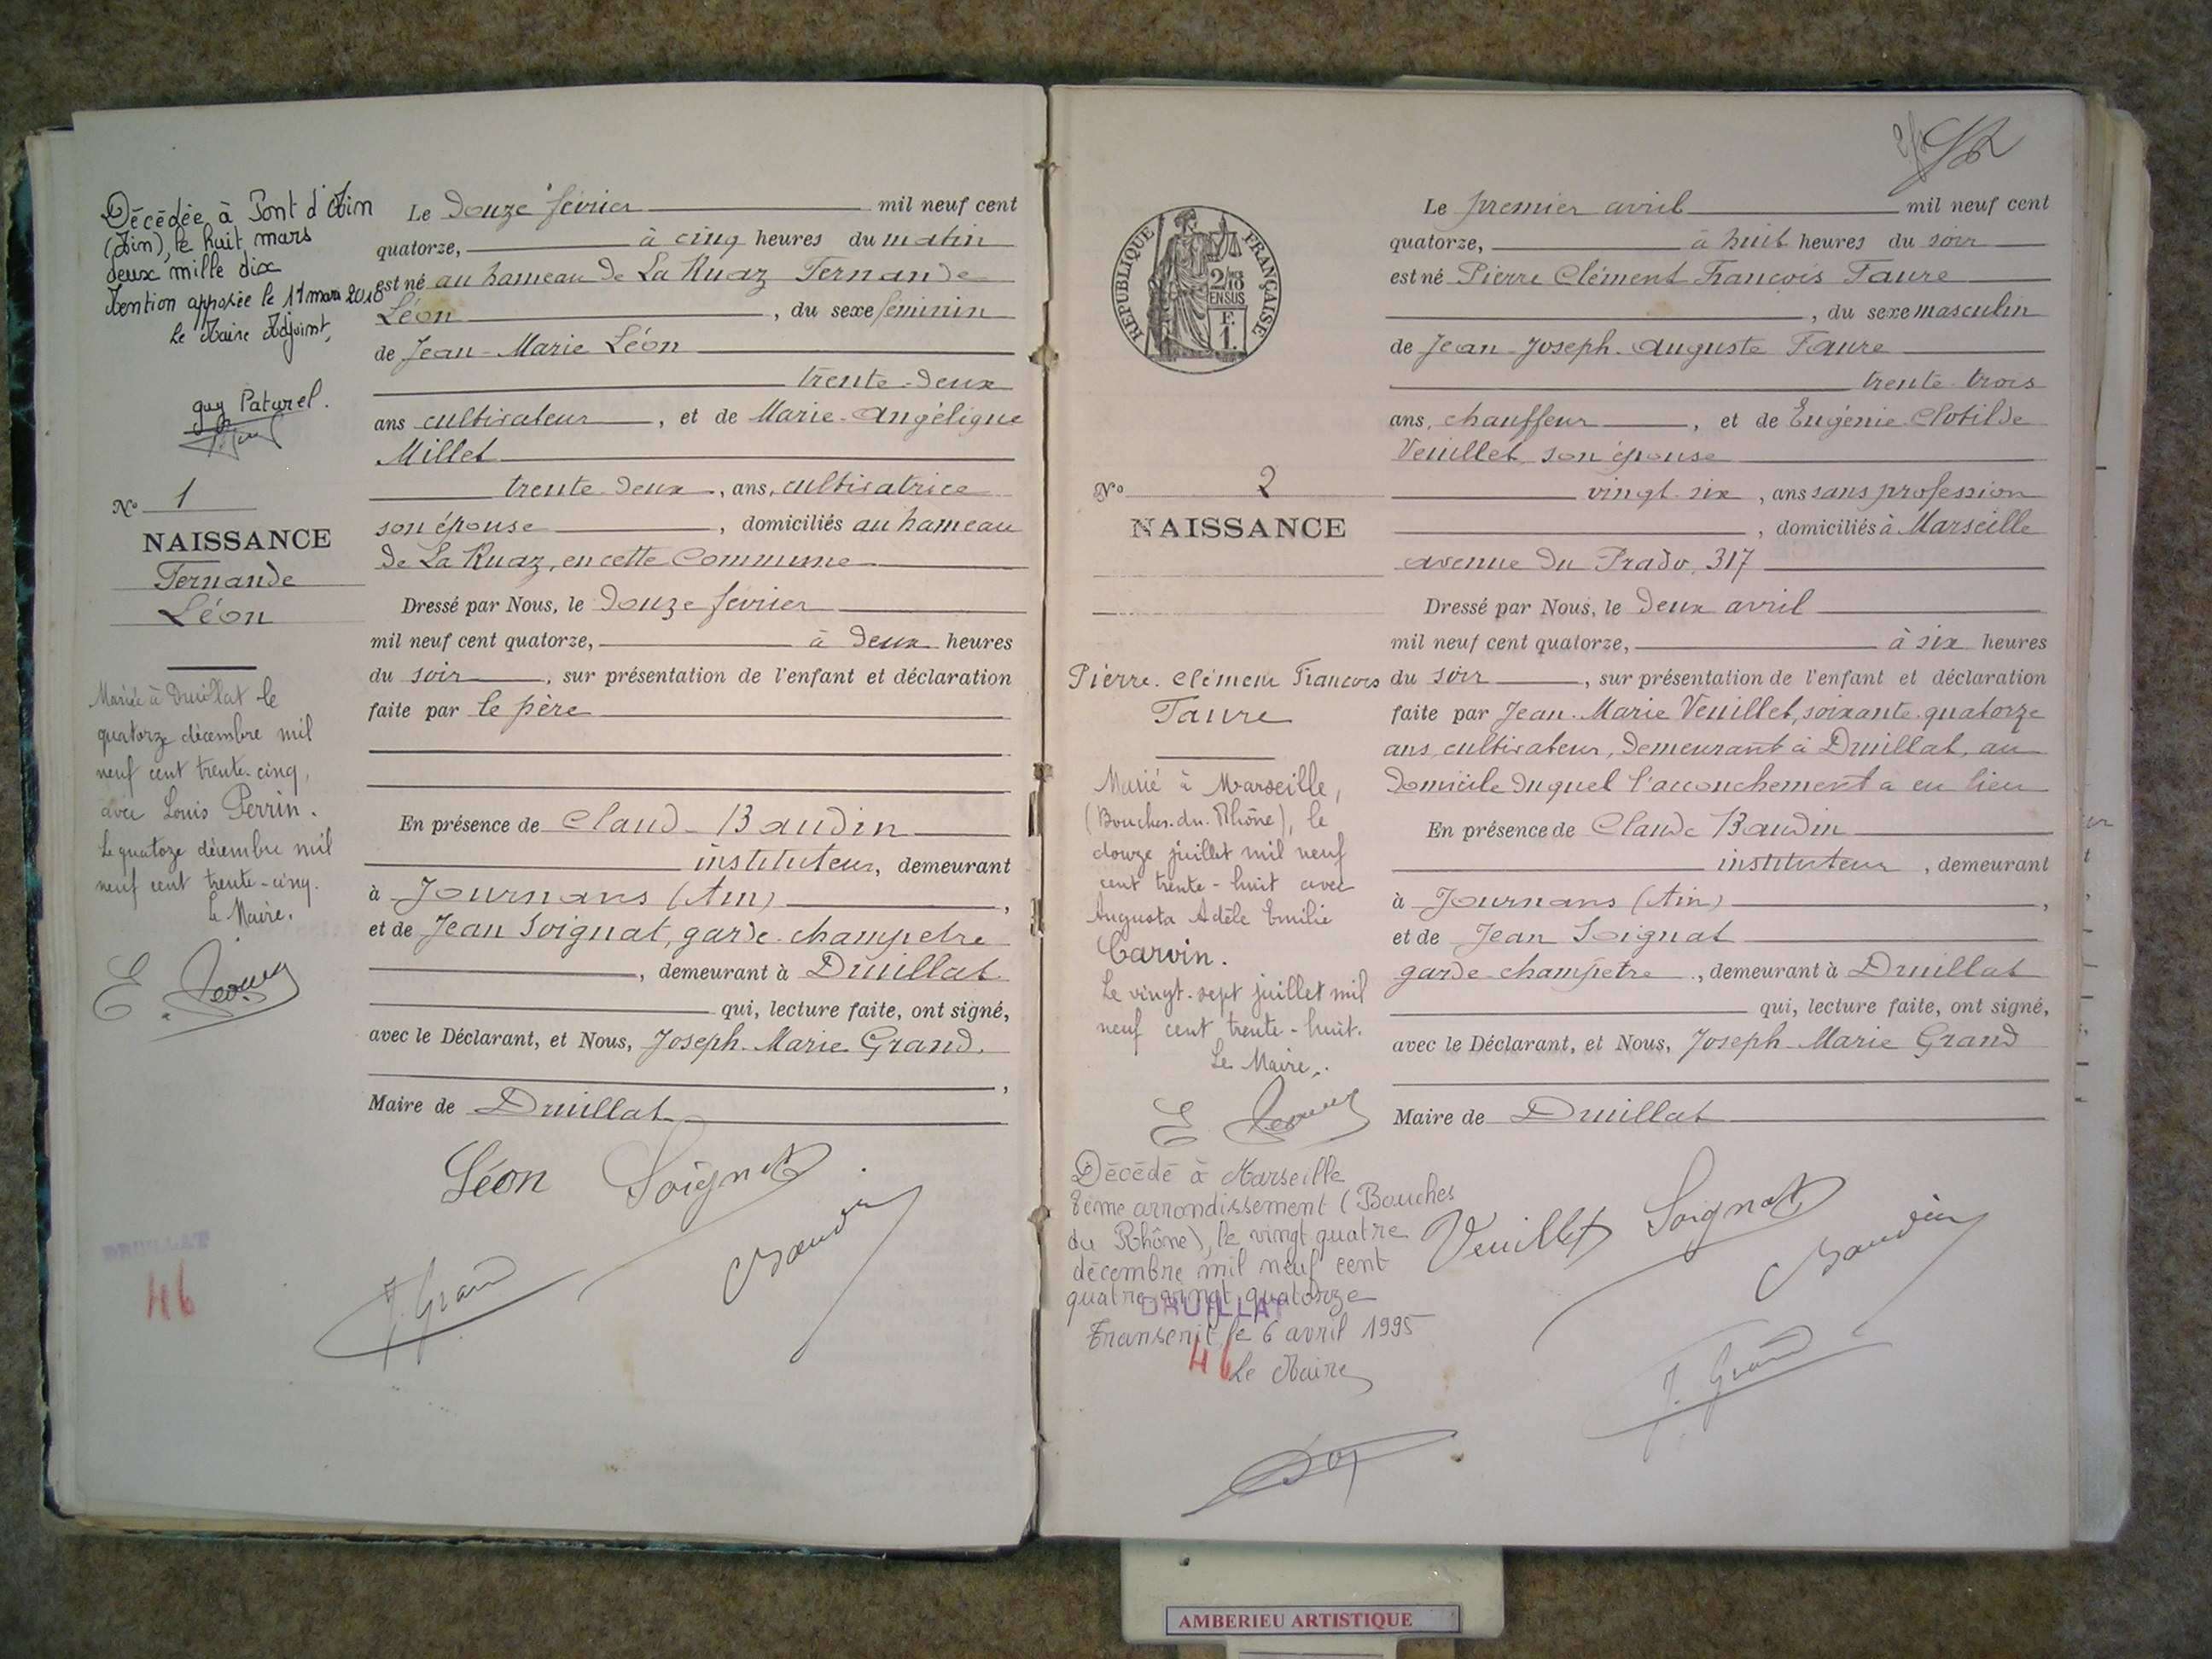 Décédée à Pont d'Ain
(Ain), le huit mars
deux mille dix
Mention apposée le 11 mars 2010
Le Maire Adjoint,
guy Paturel.
N° 1
NAISSANCE
Fernande
Léon
Mariée à Druillat le
quatorze décembre mil
neuf cent trente-cinq,
avec Louis Perrin.
Le quatoze décembre mil
neuf cent trente-cinq.
Le Maire,
DRUILLAT
46
Le douze février mil neuf cent
quatorze, à cinq heures du matin
est né au hameau de La Ruaz Fernande
Léon, du sexe féminin
de Jean-Marie Léon
trente-deux
ans cultivateur, et de Marie-Angélique
Millet
trente-deux, ans, cultivatrice
son épouse, domiciliés au hameau
de La Ruaz, en cette Commune
Dressé par Nous, le douze février
mil neuf cent quatorze, à deux heures
du soir, sur présentation de l'enfant et déclaration
faite par le père
En présence de Claud Baudin
instituteur, demeurant
à Journans (Ain),
et de Jean Soignat, garde-champetre
, demeurant à Druillat
qui, lecture faite, ont signé,
avec le Déclarant, et Nous, Joseph-Marie Grand,
,
Maire de Druillat
Léon Soignat
J. Grand Baudin
2/2
RÉPUBLIQUE FRANÇAISE
2/10
EN SUS
F.
1.
N° 2
NAISSANCE
Pierre-Clément François
Faure
Marié à Marseille,
(Bouches-du-Rhône), le
douze juillet mil neuf
cent trente-huit avec
Augusta Adèle Emilie
Carvin.
Le vingt-sept juillet mil
neuf cent trente-huit.
Le Maire,
Décédé à Marseille
8ème arrondissement (Bouches
du Rhône), le vingt quatre
décembre mil neuf cent
quatre vingt quatorze
DRUILLAT
Transcrit le 6 avril 1995
46
Le Maire
Le premier avril mil neuf cent
quatorze, à huit heures du soir
est né Pierre Clément François Faure
, du sexe masculin
de Jean-Joseph-Auguste Faure
trente-trois
ans, chauffeur, et de Eugénie-Clotilde
Veuillet, son épouse
vingt-six, ans sans profession
, domiciliés à Marseille
avenue du Prado, 317
Dressé par Nous, le deux avril
mil neuf cent quatorze, à six heures
du soir, sur présentation de l'enfant et déclaration
faite par Jean-Marie Veuillet, soixante-quatorze
ans, cultivateur, demeurant à Druillat, au
domicile duquel l'accouchement a eu lieu
En présence de Claude Baudin
instituteur, demeurant
à Journans (Ain),
et de Jean Soignat
garde-champetre, demeurant à Druillat
qui, lecture faite, ont signé,
avec le Déclarant, et Nous, Joseph-Marie Grand
Maire de Druillat
Veuillet Soignat
Baudin
J. Grand
AMBERIEU ARTISTIQUE